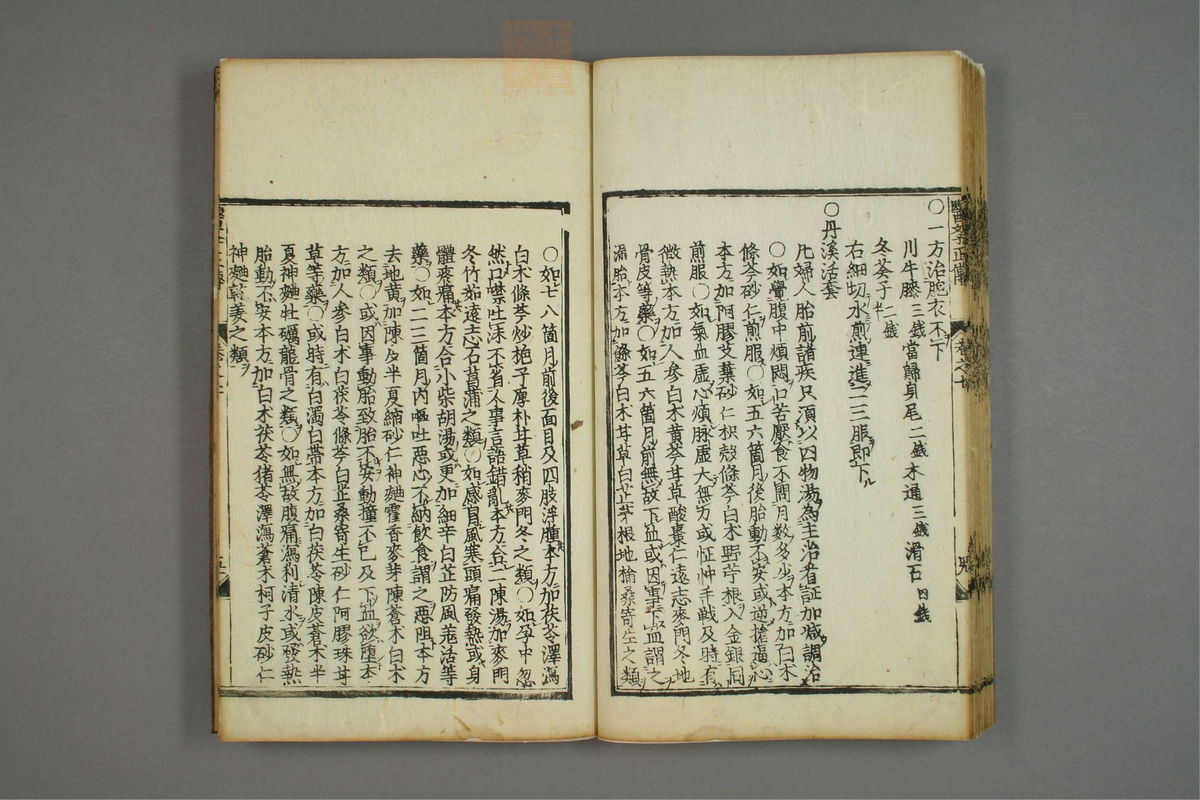 醫學正傳 卷之七
〇一方治胞衣不下
川牛膝三錢當歸身尾二錢木通三錢滑石四錢
冬葵子二錢半
右細切水煎連進二三服即下ル
〇丹溪活套
凡婦人胎前諸疾只須以四物湯為主治看証加減調治
〇如覺腹中煩悶口苦厭食不問月數多少本方加白朮
條芩砂仁煎服〇如五六箇月後胎動不安或逆搶逼心
本方加阿膠艾葉砂仁枳殼條芩白朮野苧根入金銀同
煎服〇如氣血虛心煩脉虛大無力或怔忡手戰及時有
微熱本方加人參白朮黃芩甘草酸棗仁遠志麥門冬地
骨皮等藥〇如五六箇月前無故下血或因事下血謂之
漏胎本方加條芩白朮甘草白芷茅根地榆桑寄生之類
〇如七八箇月前後面目及四肢浮腫本方加茯苓澤瀉
白朮條芩炒梔子厚朴甘草稍麥門冬之類〇如孕中忽
然口噤吐沫不省人事言語錯亂本方合二陳湯加麥門
冬竹茹遠志石菖蒲之類〇如感冒風寒頭痛發熱或身
體疼痛本方合小柴胡湯或更加細辛白芷防風羗活等
藥〇如一二三箇月內嘔吐惡心不納飲食謂之惡阻本方
去地黃加陳皮半夏縮砂仁神麯藿香麥芽陳蒼朮白朮
之類〇或因事動胎致胎不安動撞不已及下血欲墮本
方加人參白朮白茯苓條芩白芷桑寄生砂仁阿膠珠甘
草等藥〇或時有白濁白帶本方加白茯苓陳皮蒼朮半
夏神麯牡礪龍骨之類〇如無故腹痛瀉利清水或發熱
胎動不安本方加白朮茯苓猪苓澤瀉蒼朮柯子皮砂仁
神麯乾姜之類